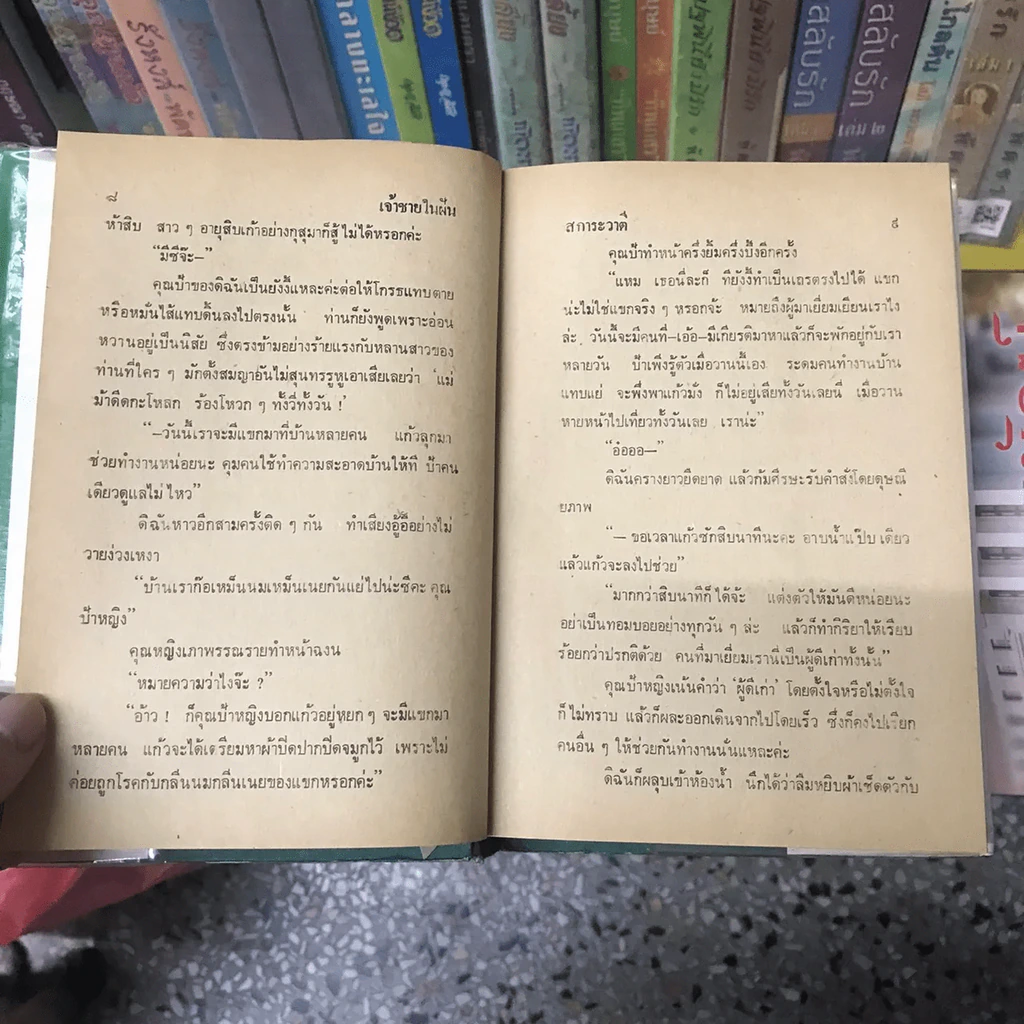 สลับรัก
สลับรัก
เล่ม ๒
๘
เจ้าชายในฝัน
ห้าสิบ สาว ๆ อายุสิบเก้าอย่างกุสุมาก็สู้ไม่ได้หรอกค่ะ
“มีซีจ๊ะ—”
คุณป้าของดิฉันเป็นยังงี้แหละค่ะต่อให้โกรธแทบตาย
หรือหมั่นไส้แทบดิ้นลงไปตรงนั้น ท่านก็ยังพูดเพราะอ่อน
หวานอยู่เป็นนิสัย ซึ่งตรงข้ามอย่างร้ายแรงกับหลานสาวของ
ท่านที่ใคร ๆ มักตั้งสมญาอันไม่สุนทรรูหูเอาเสียเลยว่า ‘แม่
ม้าดีดกะโหลก ร้องโหวก ๆ ทั้งวี่ทั้งวัน !’
“—วันนี้เราจะมีแขกมาที่บ้านหลายคน แก้วลุกมา
ช่วยทำงานหน่อยนะ คุมคนใช้ทำความสะอาดบ้านให้ที ป้าคน
เดียวดูแลไม่ไหว”
ดิฉันหาวอีกสามครั้งติด ๆ กัน ทำเสียงอู้อี้อย่างไม่
วายง่วงเหงา
“บ้านเราก๊อเหม็นนมเหม็นเนยกันแย่ไปน่ะซีคะ คุณ
ป้าหญิง”
คุณหญิงเภาพรรณรายทำหน้าฉงน
“หมายความว่าไงจ๊ะ ?”
“อ้าว ! ก็คุณป้าหญิงบอกแก้วอยู่หยก ๆ จะมีแขกมา
หลายคน แก้วจะได้เตรียมหาผ้าปิดปากปิดจมูกไว้ เพราะไม่
ค่อยถูกโรคกับกลิ่นนมกลิ่นเนยของแขกหรอกค่ะ”
สภาระวาตี
๙
คุณป้าทำหน้าครึ่งยิ้มครึ่งบึ้งอีกครั้ง
“แหม เธอนี่ละก็ ทียังงี้ทำเป็นเถรตรงไปได้ แขก
น่ะไม่ใช่แขกจริง ๆ หรอกจ้ะ หมายถึงผู้มาเยี่ยมเยียนเราไง
ล่ะ วันนี้จะมีคนที่—เอ้อ—มีเกียรติมาหาแล้วก็จะพักอยู่กับเรา
หลายวัน ป้าเพิ่งรู้ตัวเมื่อวานนี้เอง ระดมคนทำงานบ้าน
แทบแย่ จะพึ่งพาแก้วมั่ง ก็ไม่อยู่เสียทั้งวันเลยนี่ เมื่อวาน
หายหน้าไปเที่ยวทั้งวันเลย เราน่ะ”
“อ๋อออ—”
ดิฉันครางยาวยืดยาด แล้วก้มศีรษะรับคำสั่งโดยดุษณี
ยภาพ
“— ขอเวลาแก้วซักสิบนาทีนะคะ อาบน้ำแป๊บเดียว
แล้วแก้วจะลงไปช่วย”
“มากกว่าสิบนาทีก็ได้จ้ะ แต่งตัวให้มันดีหน่อยนะ
อย่าเป็นทอมบอยอย่างทุกวัน ๆ ล่ะ แล้วก็ทำกิริยาให้เรียบ
ร้อยกว่าปรกติด้วย คนที่มาเยี่ยมเรานี่เป็นผู้ดีเก่าทั้งนั้น”
คุณป้าหญิงเน้นคำว่า ‘ผู้ดีเก่า’ โดยตั้งใจหรือไม่ตั้งใจ
ก็ไม่ทราบ แล้วก็ผละออกเดินจากไปโดยเร็ว ซึ่งก็คงไปเรียก
คนอื่น ๆ ให้ช่วยกันทำงานนั่นแหละค่ะ
ดิฉันก็ผลุบเข้าห้องน้ำ นึกได้ว่าลืมหยิบผ้าเช็ดตัวกับ